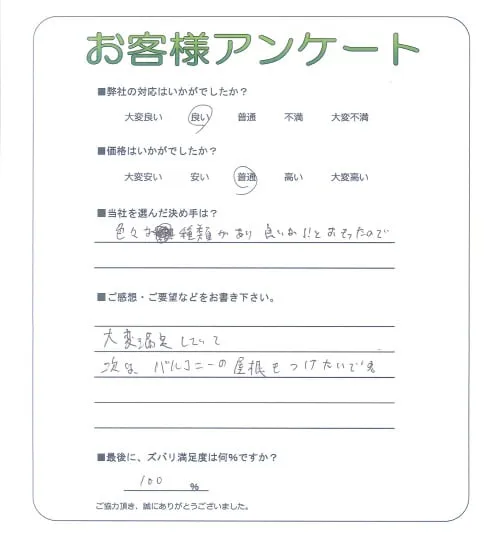 お客様アンケート
■弊社の対応はいかがでしたか？
大変良い 良い 普通 不満 大変不満
■価格はいかがでしたか？
大変安い 安い 普通 高い 大変高い
■当社を選んだ決め手は？
色々な 種類があり 良いな!!とおもったので
■ご感想・ご要望などをお書き下さい。
大変満足していて
次は、バルコニーの屋根をつけたいです
■最後に、ズバリ満足度は何%ですか？
100 %
ご協力頂き、誠にありがとうございました。